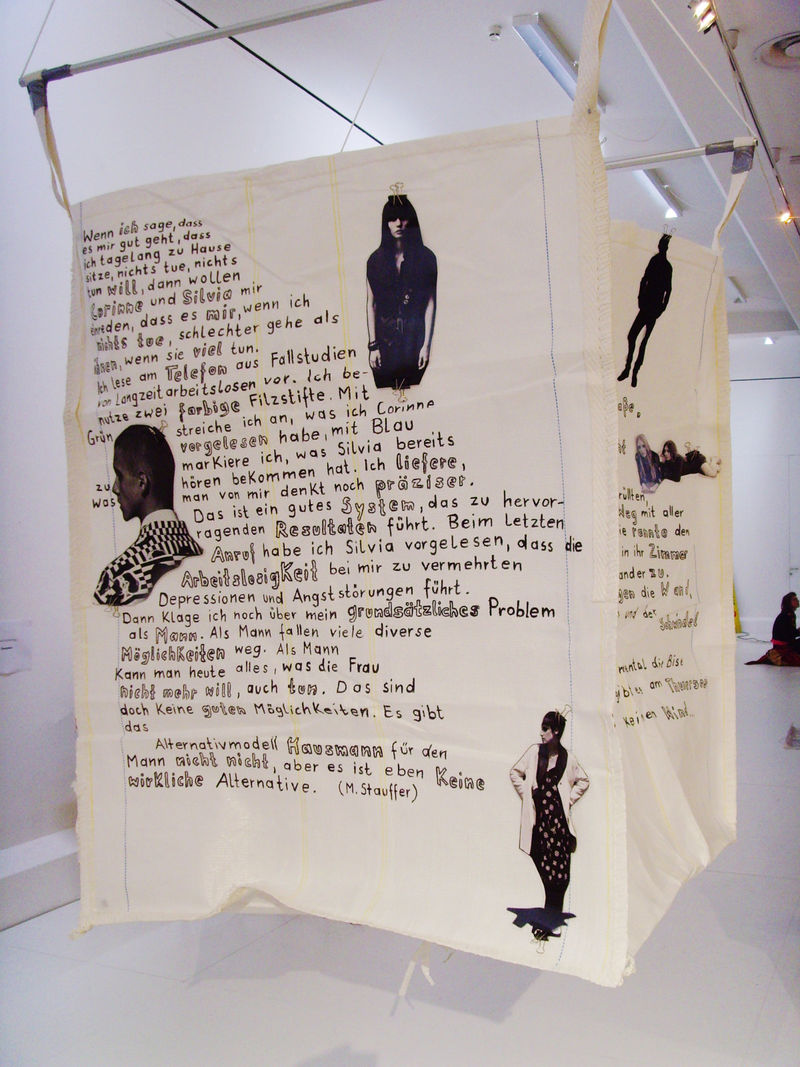 Wenn ich sage, dass
es mir gut geht, dass
ich tagelang zu Hause
sitze, nichts tue, nichts
tun will, dann wollen
Corinne und Silvia mir
einreden, dass es mir, wenn ich
nichts tue, schlechter gehe als
ihnen, wenn sie viel tun.
Ich lese am Telefon aus Fallstudien
von Langzeitarbeitslosen vor. Ich be-
nutze zwei farbige Filzstifte. Mit
Grün streiche ich an, was ich Corinne
vorgelesen habe, mit Blau
markiere ich, was Silvia bereits
zu hören bekommen hat. Ich liefere,
was man von mir denkt noch präziser.
Das ist ein gutes System, das zu hervor-
ragenden Resultaten führt. Beim letzten
Anruf habe ich Silvia vorgelesen, dass die
Arbeitslosigkeit bei mir zu vermehrten
Depressionen und Angststörungen führt.
Dann Klage ich noch über mein grundsätzliches Problem
als Mann. Als Mann fallen viele diverse
Möglichkeiten weg. Als Mann
Kann man heute alles, was die Frau
nicht mehr will, auch tun. Das sind
doch Keine guten Möglichkeiten. Es gibt
das
Alternativmodell Hausmann für den
Mann nicht nicht, aber es ist eben Keine
wirkliche Alternative. (M. Stauffer)
rüllten,
Weg mit aller
ie rannte den
in ihr Zimmer
ander zu.
gen die Wand,
und der Schwindel
mental die Bise
am
Keinen Wind...